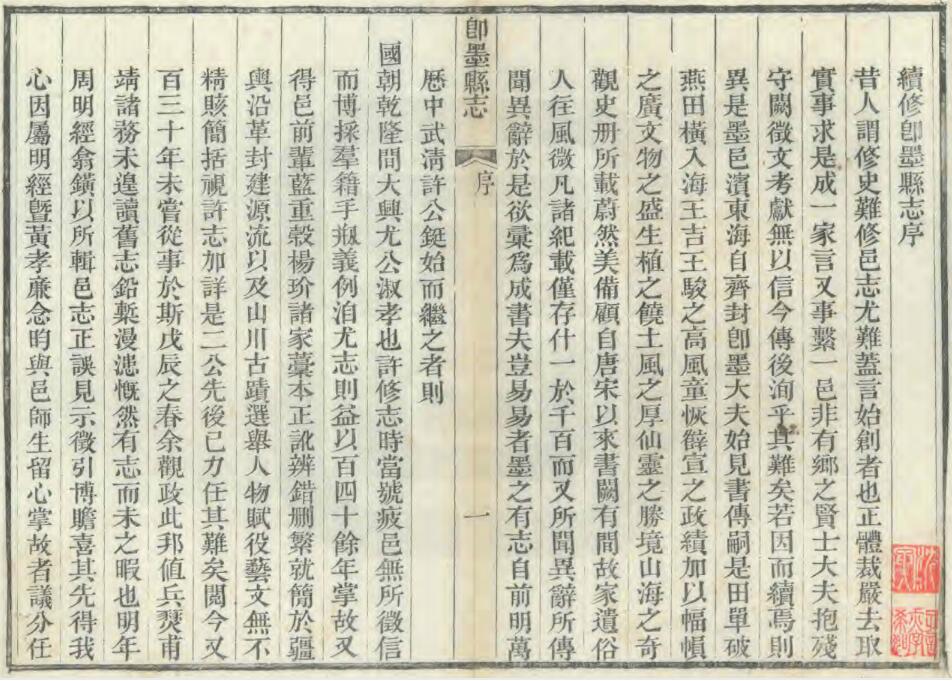 續修卽墨縣志序
昔人謂修史難修邑志尤難蓋言始創者也正體裁嚴去取
實事求是成一家言又事繫一邑非有鄕之賢士大夫抱殘
守闕徵文考獻無以信今傳後洵乎其難矣若因而續焉則
異是墨邑濱東海自齊封卽墨大夫始見書傳嗣是田單破
燕田橫入海王吉王駿之高風童恢薛宣之政績加以幅幀
之廣文物之盛生植之饒土風之厚仙靈之勝境山海之奇
觀史册所載蔚然美備顧自唐宋以來書闕有間故家遺俗
人往風微凡諸紀載僅存什一於千百而又所聞異辭所傳
聞異辭於是欲彙爲成書夫豈易易者墨之有志自前明萬
卽墨縣志
序
一
厯中武淸許公鋌始而繼之者則
國朝乾隆間大興尤公淑孝也許修志時當號疲邑無所徵信
而博採羣籍手剏義例洎尤志則益以百四十餘年掌故又
得邑前輩藍重穀楊玠諸家藁本正訛辨錯刪繁就簡於疆
輿沿革封建源流以及山川古蹟選舉人物賦役藝文無不
精賅簡括視許志加詳是二公先後已力任其難矣閱今又
百三十年未嘗從事於斯戊辰之春余觀政此邦値兵燹甫
靖諸務未遑讀舊志鉛槧漫漶慨然有志而未之暇也明年
周明經翕鐄以所輯邑志正誤見示徵引博贍喜其先得我
心因屬明經曁黃孝廉念昀與邑師生留心掌故者議分任